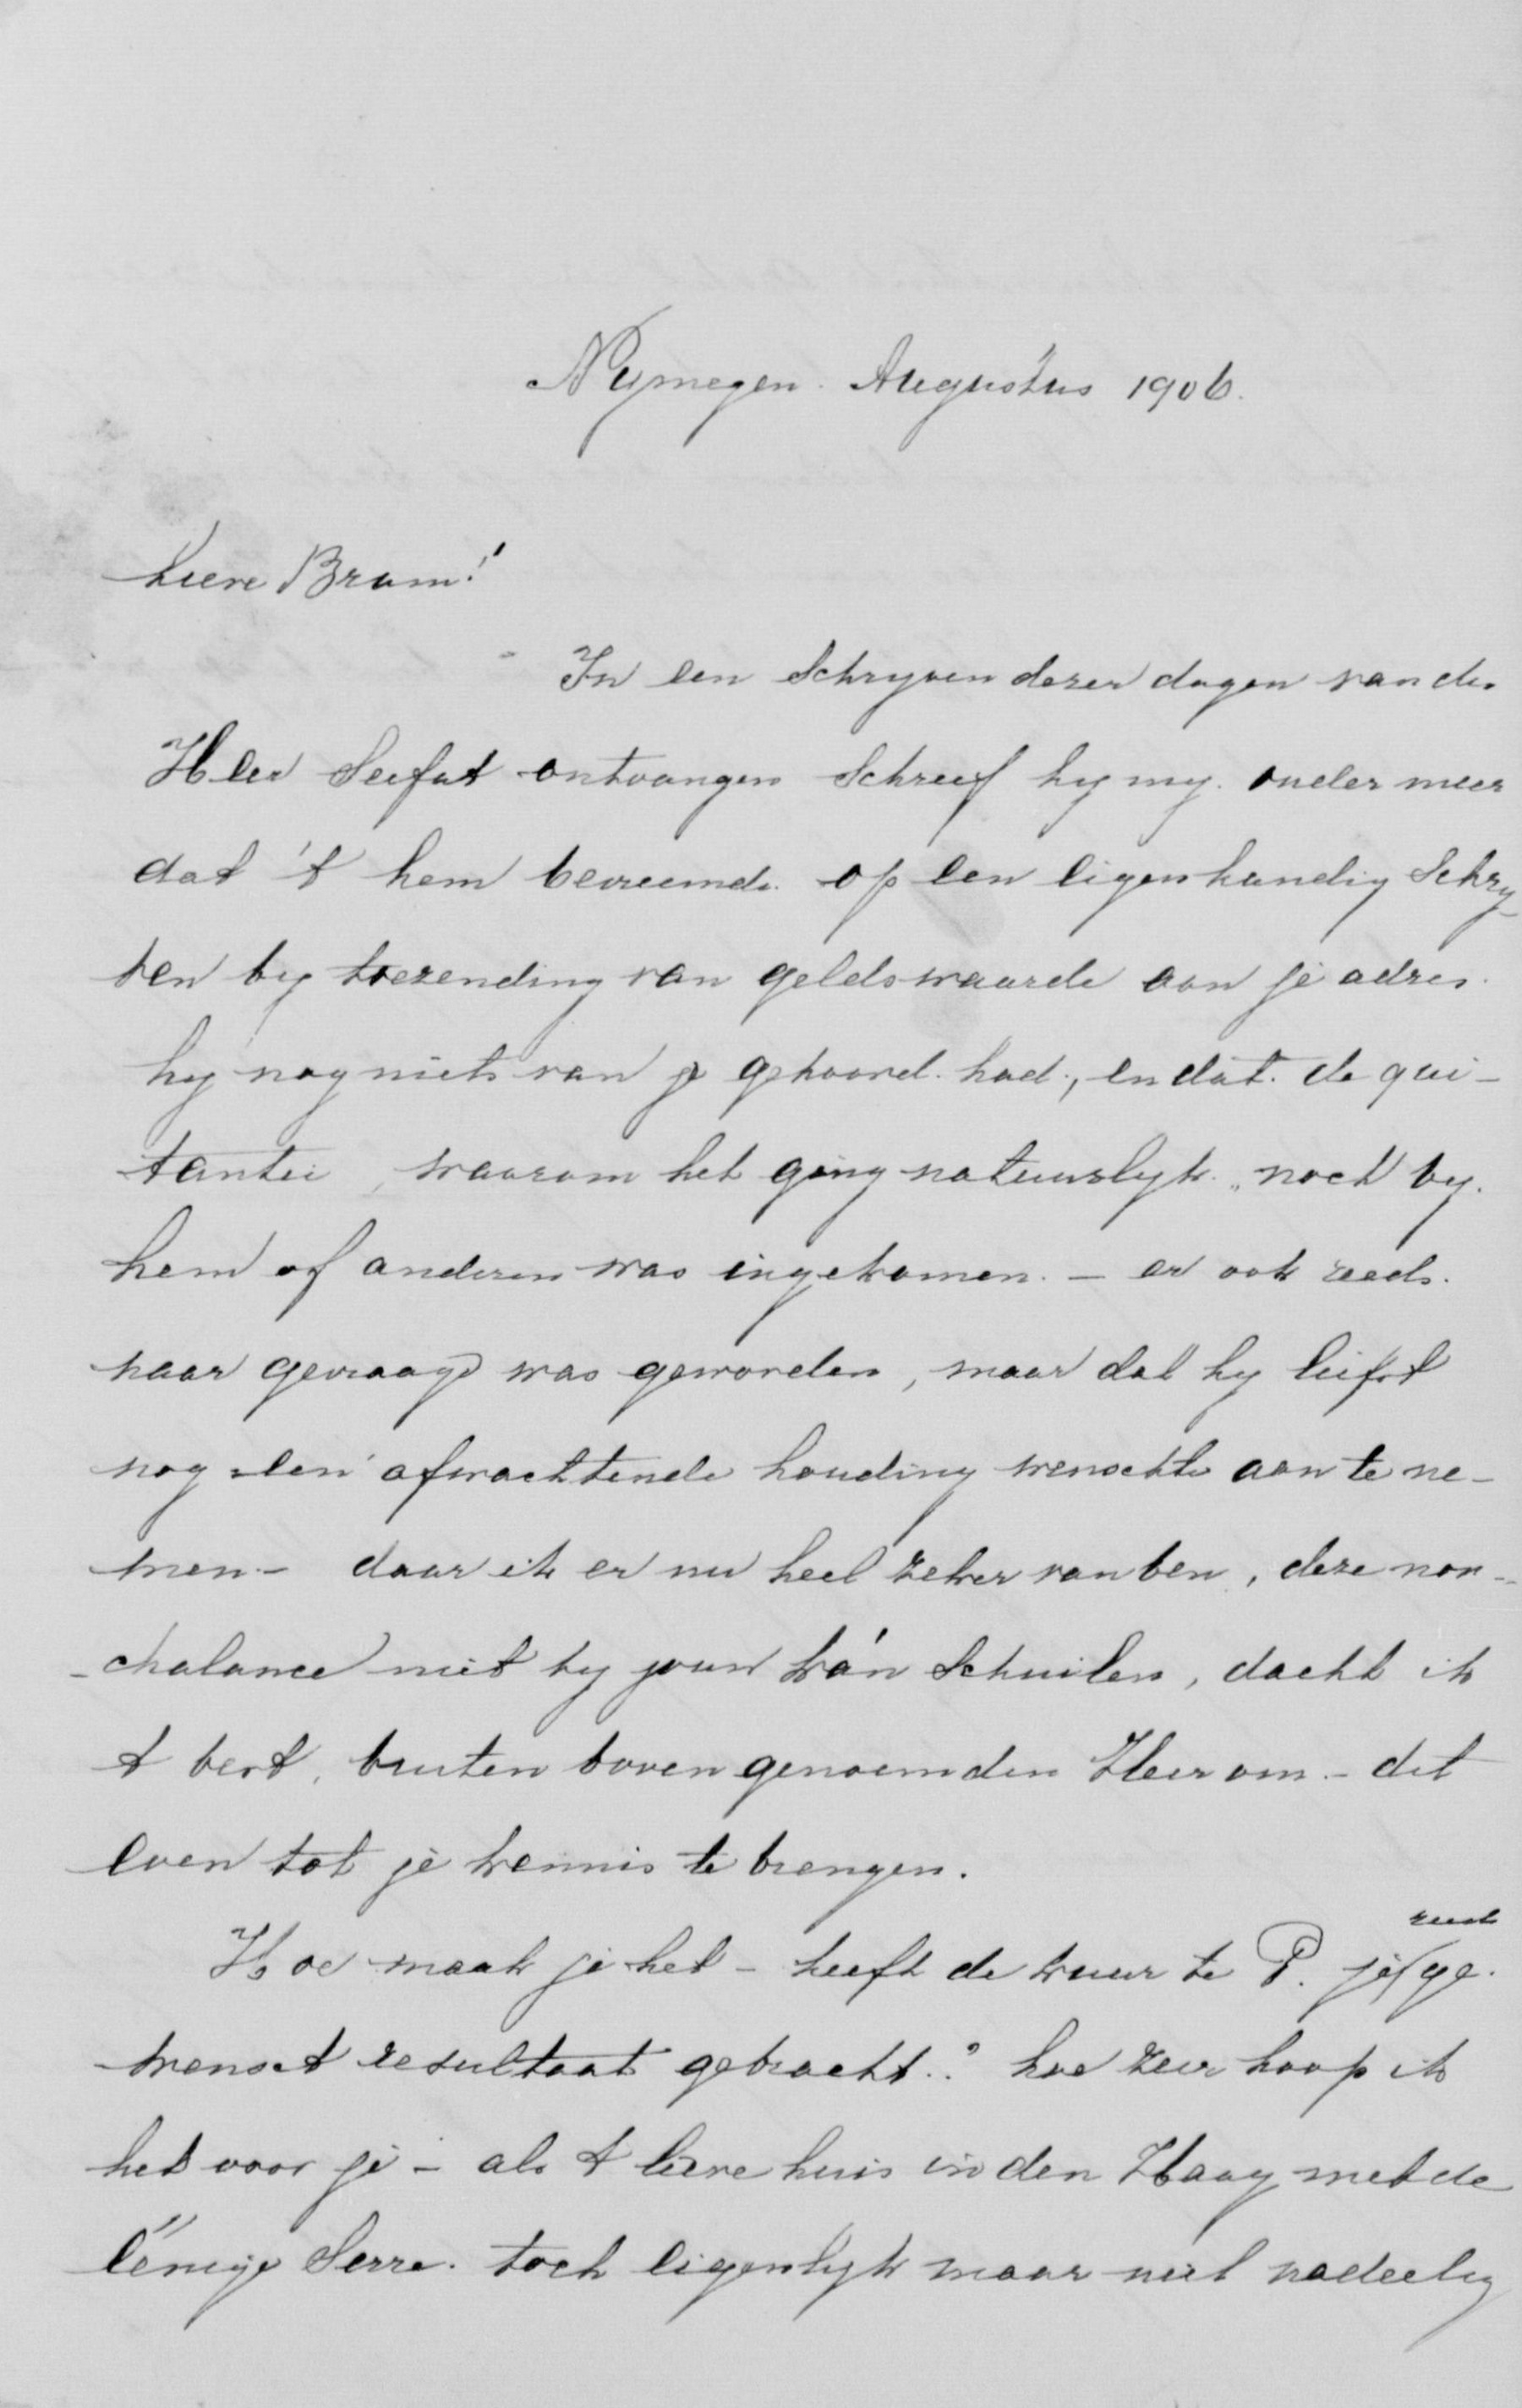 Nymegen. Augustus 1906.
Lieve Bram!
In een Schryven dezer dagen van de
Heer Seifat ontvangen Schreef hy my. onder meer
dat 't hem bevreemde op een eigenhandig Schry
ven by toezending van geldswaarde aan je adres.
hy nog niets van je gehoord had, en dat de qui-
tantie, waarom het ging natuurlyk „noch by
hem of anderen was ingekomen. – er ook reeds.
naar gevraagd was geworden, maar dat hy liefst
nog een afwachtende houding wenschte aan te ne-
men – daar ik er nu heel zeker van ben, deze non-
-chalance niet by jouw kán Schuilen, dacht ik
t best, buiten bovengenoemden Heer om – dit
even tot je kennis te brengen.
Hoe maak je het – heeft de kuur te P. je reeds ge.
wenscht resultaat gebracht..? hoe zeer hoop ik
het voor je – als t lieve huis in den Haag met de
éénige Serre. toch eigenlyk maar niet nadeelig